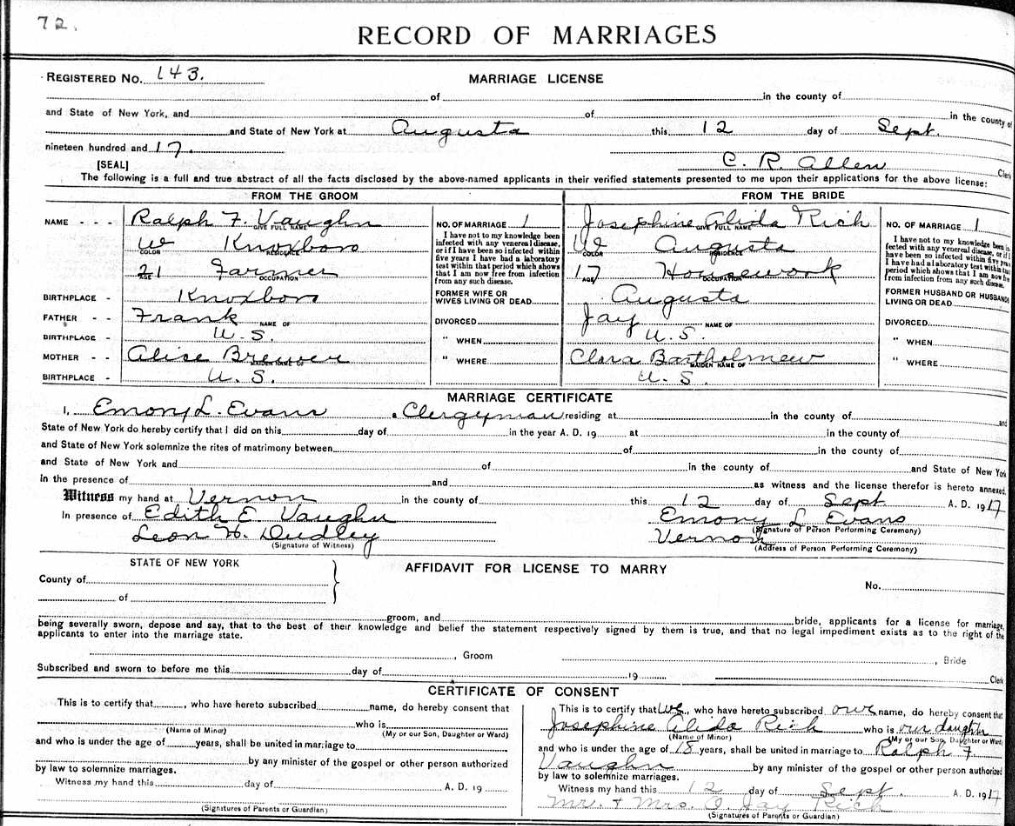 72.
RECORD OF MARRIAGES
REGISTERED No. 143.
MARRIAGE LICENSE
of in the county of
and State of New York, and of in the county of
and State of New York at Augusta this 12 day of Sept.
nineteen hundred and 17.
[SEAL] C. R. Allen Clerk
The following is a full and true abstract of all the facts disclosed by the above-named applicants in their verified statements presented to me upon their applications for the above license:
FROM THE GROOM FROM THE BRIDE
NAME - - - Ralph F. Vaughn NO. OF MARRIAGE 1 Josephine Alida Rich NO. OF MARRIAGE 1
GIVE FULL NAME GIVE FULL NAME
W Knoxboro W Augusta
COLOR RESIDENCE COLOR RESIDENCE
21 Farmer 17 Housework
AGE OCCUPATION AGE OCCUPATION
I have not to my knowledge been
infected with any venereal disease,
or if I have been so infected within
five years I have had a laboratory
test within that period which shows
that I am now free from infection
from any such disease.
I have not to my knowledge been in
fected with any venereal disease, or if I
have been so infected within five
I have had a laboratory test within
period which shows that I am now
from infection from any such disease.
BIRTHPLACE - Knoxboro FORMER WIFE OR WIVES LIVING OR DEAD Augusta FORMER HUSBAND OR HUSBANDS LIVING OR DEAD
FATHER - - Frank DIVORCED Jay DIVORCED
NAME OF NAME OF
BIRTHPLACE - U. S. " WHEN U. S. " WHEN
MOTHER - - Alise Brewer " WHERE Clara Bartholmew " WHERE
MAIDEN NAME OF MAIDEN NAME OF
BIRTHPLACE - U. S. U. S.
MARRIAGE CERTIFICATE
I, Emory L. Evans, a Clergyman residing at in the county of and
State of New York do hereby certify that I did on this day of in the year A. D. 19 at in the county of
and State of New York solemnize the rites of matrimony between of in the county of
and State of New York and of in the county of and State of New York
in the presence of and as witness and the license therefor is hereto annexed.
Witness my hand at Vernon in the county of this 12 day of Sept A. D. 1917
In presence of Edith E. Vaughn Emory L Evans
(Signature of Person Performing Ceremony)
Leon H. Dudley Vernon
(Signature of Witness) (Address of Person Performing Ceremony)
STATE OF NEW YORK
County of
of
AFFIDAVIT FOR LICENSE TO MARRY
No.
groom, and bride, applicants for a license for marriage,
being severally sworn, depose and say, that to the best of their knowledge and belief the statement respectively signed by them is true, and that no legal impediment exists as to the right of the
applicants to enter into the marriage state.
, Groom , Bride
Subscribed and sworn to before me this day of 19 Clerk
CERTIFICATE OF CONSENT
This is to certify that , who have hereto subscribed name, do hereby consent that
who is
(Name of Minor) (My or our Son, Daughter or Ward)
and who is under the age of years, shall be united in marriage to
by any minister of the gospel or other person authorized
by law to solemnize marriages.
Witness my hand this day of A. D. 19
(Signatures of Parents or Guardian)
This is to certify that we, who have hereto subscribed our name, do hereby consent that
Josephine Alida Rich who is our daughter
(Name of Minor) (My or our Son, Daughter or Ward)
and who is under the age of 18 years, shall be united in marriage to Ralph F
Vaughn by any minister of the gospel or other person authorized
by law to solemnize marriages.
Witness my hand this 12 day of Sept. A. D. 1917
Mr. & Mrs. O. Jay Rich
(Signatures of Parents or Guardian)